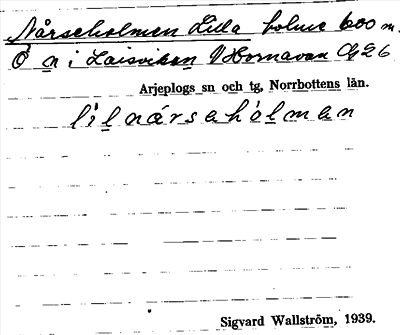 Nårseholmen Lilla holme 600 m.
Ö n i Laisviken i Hornavan G26
Arjeplogs sn och tg, Norrbottens län.
lilnårsehólmen
Sigvard Wallström, 1939.